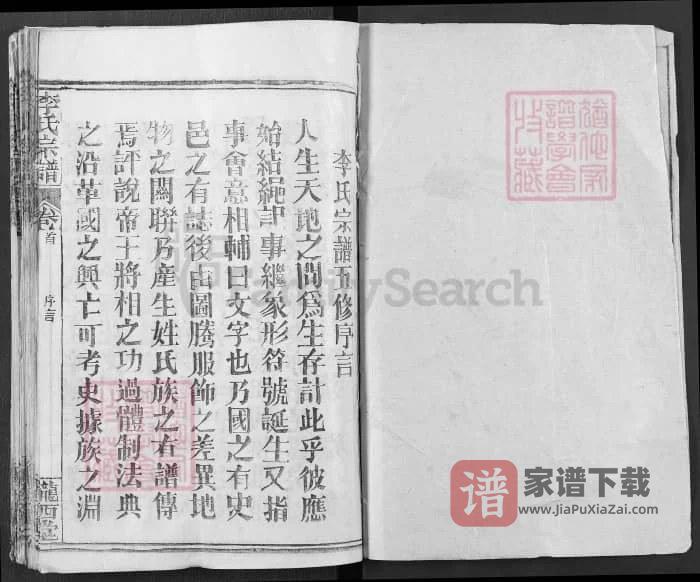 李氏宗譜五修序言
人生天地之間爲生存計此乎彼應
始結繩記事繼象形符號誕生又指
事會意相輔曰文字也乃國之有史
邑之有誌後由圖騰服飾之差異地
物之關聯乃產生姓氏族之有譜傳
焉評說帝王將相之功過體制法典
之沿革國之興亡可考史據族之淵
李氏宗譜
卷首
序言
隴西堂
FamilySearch
譜學會
收藏
谱
家谱下载
www.JiaPuXiaZai.com